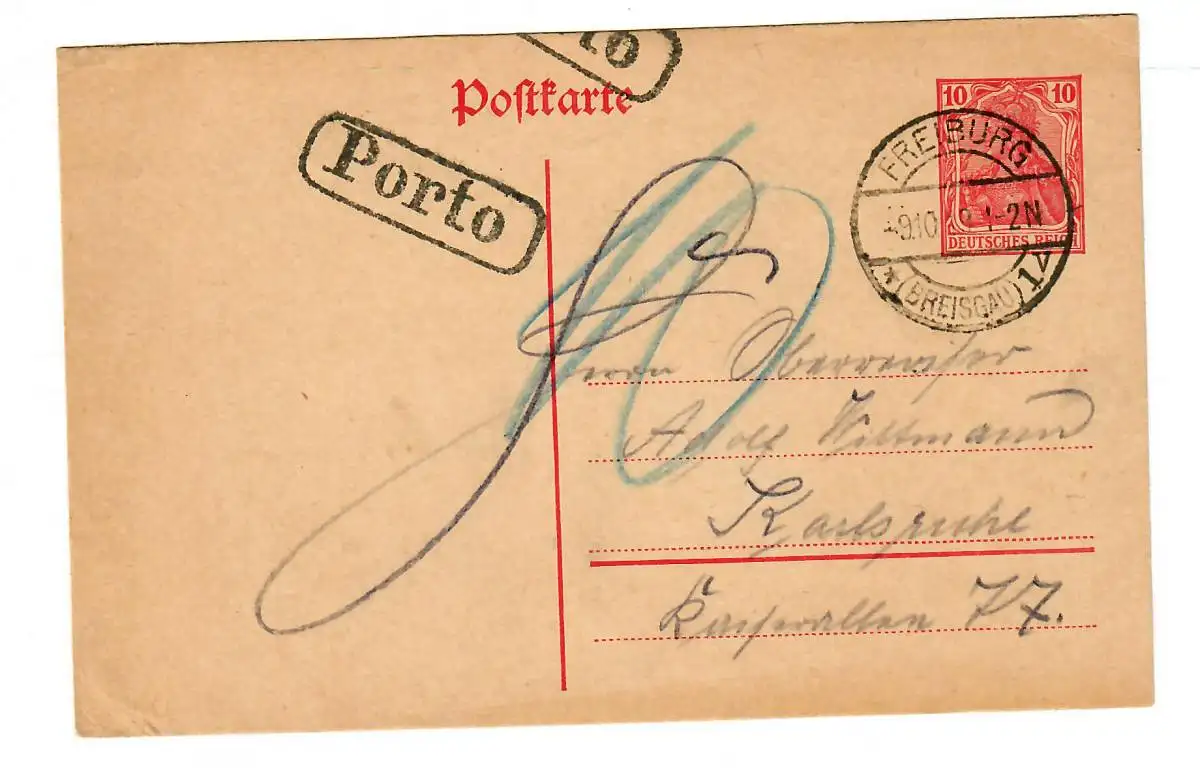 Porto
Postkarte
Porto
10 10
DEUTSCHES REICH
FREIBURG
9.10 1-2N
* (BREISGAU) 14
10
Herrn
Adolf Wittmann
Karlsruhe
Kaiserallee 77.